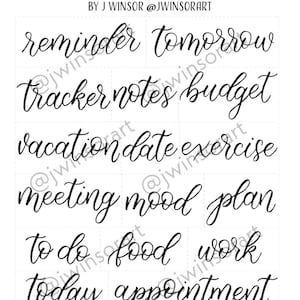 BY J WINSOR @JWINSORART
reminder tomorrow
tracker notes budget
vacation date exercise
meeting mood plan
to do food work
today appointment
@jwinsorart
@jwinsorart
@jwinsorart
@jwinsorart
@jwinsorart
@jwinsorart